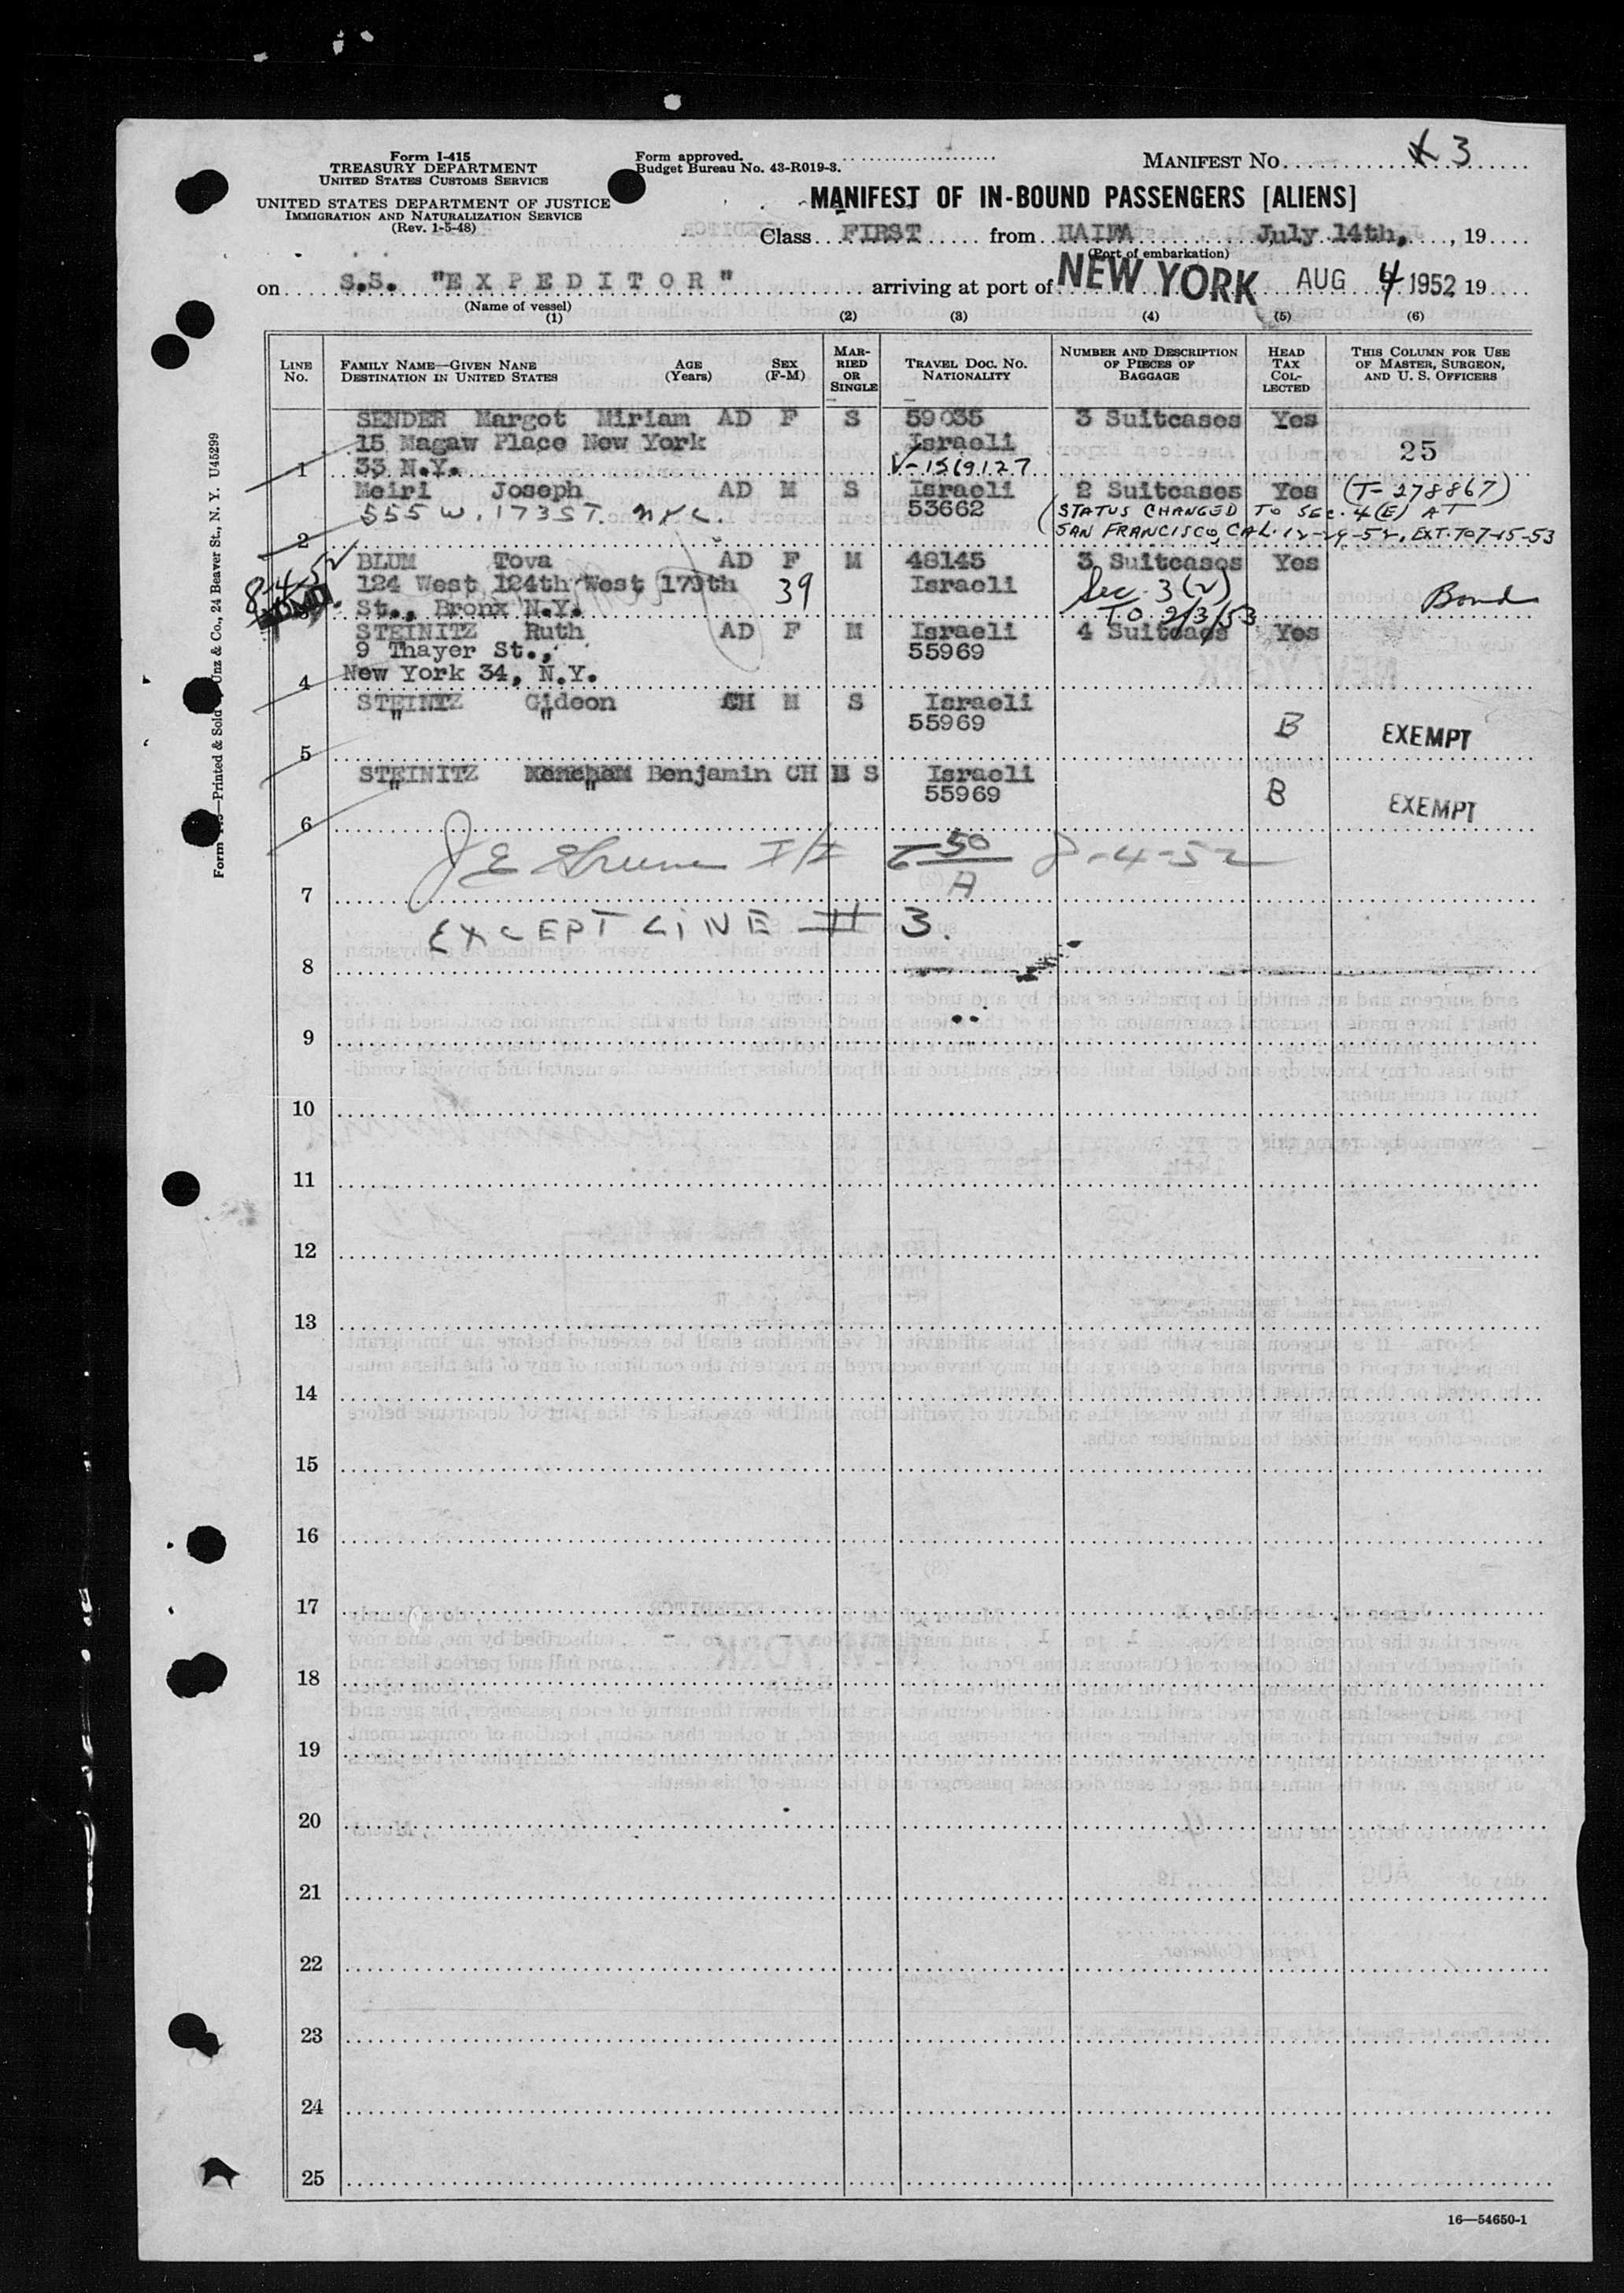 Form I-415
TREASURY DEPARTMENT
UNITED STATES CUSTOMS SERVICE
UNITED STATES DEPARTMENT OF JUSTICE
IMMIGRATION AND NATURALIZATION SERVICE
(Rev. 1-5-48)
Form approved.
Budget Bureau No. 43-R019-3.
MANIFEST NO. 3
MANIFEST OF IN-BOUND PASSENGERS [ALIENS]
Class FIRST from HAIFA July 14th, , 19
(Port of embarkation)
on S.S. "EXPEDITOR" arriving at port of NEW YORK AUG 4 1952 19
(Name of vessel)
(1) (2) (3) (4) (5) (6)
LINE NO. FAMILY NAME—GIVEN NANE DESTINATION IN UNITED STATES AGE (Years) SEX (F-M) MARRIED OR SINGLE TRAVEL DOC. NO. NATIONALITY NUMBER AND DESCRIPTION OF PIECES OF BAGGAGE HEAD TAX COLLECTED THIS COLUMN FOR USE OF MASTER, SURGEON, AND U. S. OFFICERS
SENDER Margot Miriam AD F S 59035 3 Suitcases Yes
15 Magaw Place New York Israeli 25
1 33 N.Y. V-1569127
Meiri Joseph AD M S Israeli 2 Suitcases Yes (T-278867)
555 W. 173 ST. NYC. 53662 (STATUS CHANGED TO SEC. 4(E) AT
2 SAN FRANCISCO, CAL. 12-29-52, EXT. TO 7-15-53
BLUM Tova AD F M 48145 3 Suitcases Yes
8-4-52 124 West 124th West 179th 39 Israeli Sec. 3(2)
3 St., Bronx N.Y. TO 2/3/53 Bond
STEINITZ Ruth AD F M Israeli 4 Suitcaes Yes
9 Thayer St., 55969
4 New York 34, N.Y.
STEINTZ Gideon CH M S Israeli
" " 55969 B EXEMPT
5
STEINITZ Benjamin CH M S Israeli
" " 55969 B EXEMPT
6
8-4-52
7
EXCEPT LINE # 3.
8
9
10
11
12
13
14
15
16
17
18
19
20
21
22
23
24
25
16—54650-1
Printed & Sold Unz & Co., 24 Beaver St., N. Y. U45299